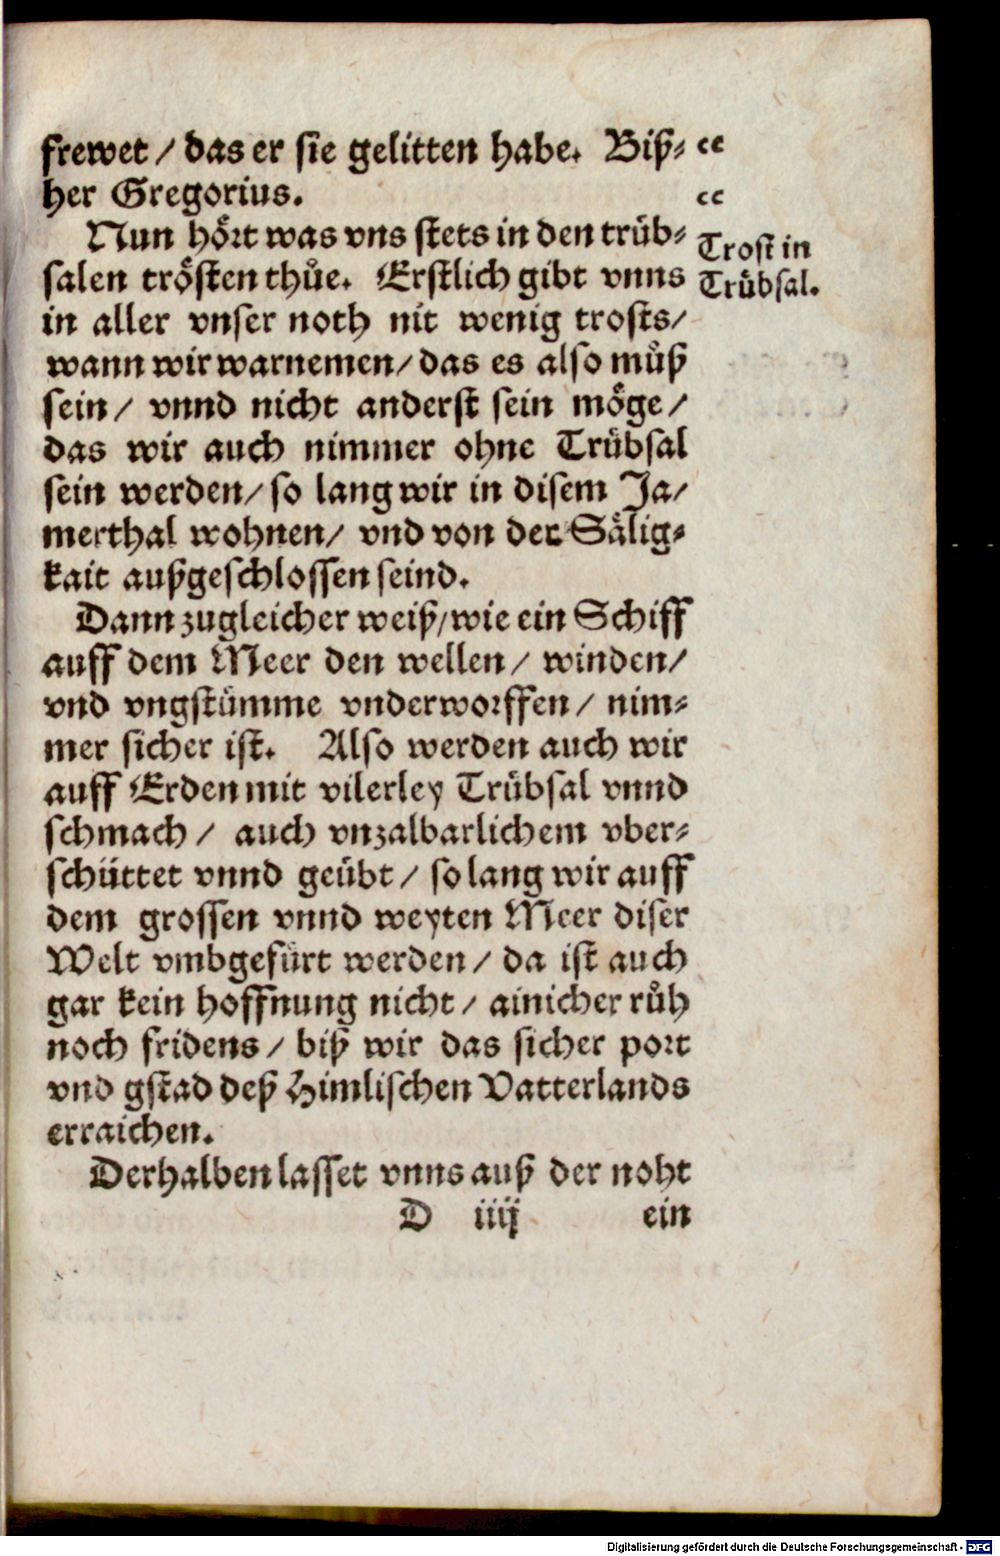 frewet / das er sie gelitten habe. Biß= “
her Gregorius. “
Nun hört was vns stets in den trüb=
salen trösten thůe. Erstlich gibt vnns
Trost in
Trübsal.
in aller vnser noth nit wenig trosts/
wann wir warnemen/ das es also můß
sein/ vnnd nicht anderst sein möge/
das wir auch nimmer ohne Trübsal
sein werden/ so lang wir in disem Ja/
merthal wohnen/ vnd von der Sälig=
kait außgeschlossen seind.
Dann zugleicher weiß/ wie ein Schiff
auff dem Meer den wellen/ winden/
vnd vngstümme vnderworffen/ nim=
mer sicher ist. Also werden auch wir
auff Erden mit vilerley Trübsal vnnd
schmach / auch vnzalbarlichem vber=
schüttet vnnd geübt / so lang wir auff
dem grossen vnnd weyten Meer diser
Welt vmbgefürt werden / da ist auch
gar kein hoffnung nicht / ainicher růh
noch fridens / biß wir das sicher port
vnd gstad deß Himlischen Vatterlands
erraichen.
Derhalben lasset vnns auß der noht
D iiij ein
Digitalisierung gefördert durch die Deutsche Forschungsgemeinschaft - DFG